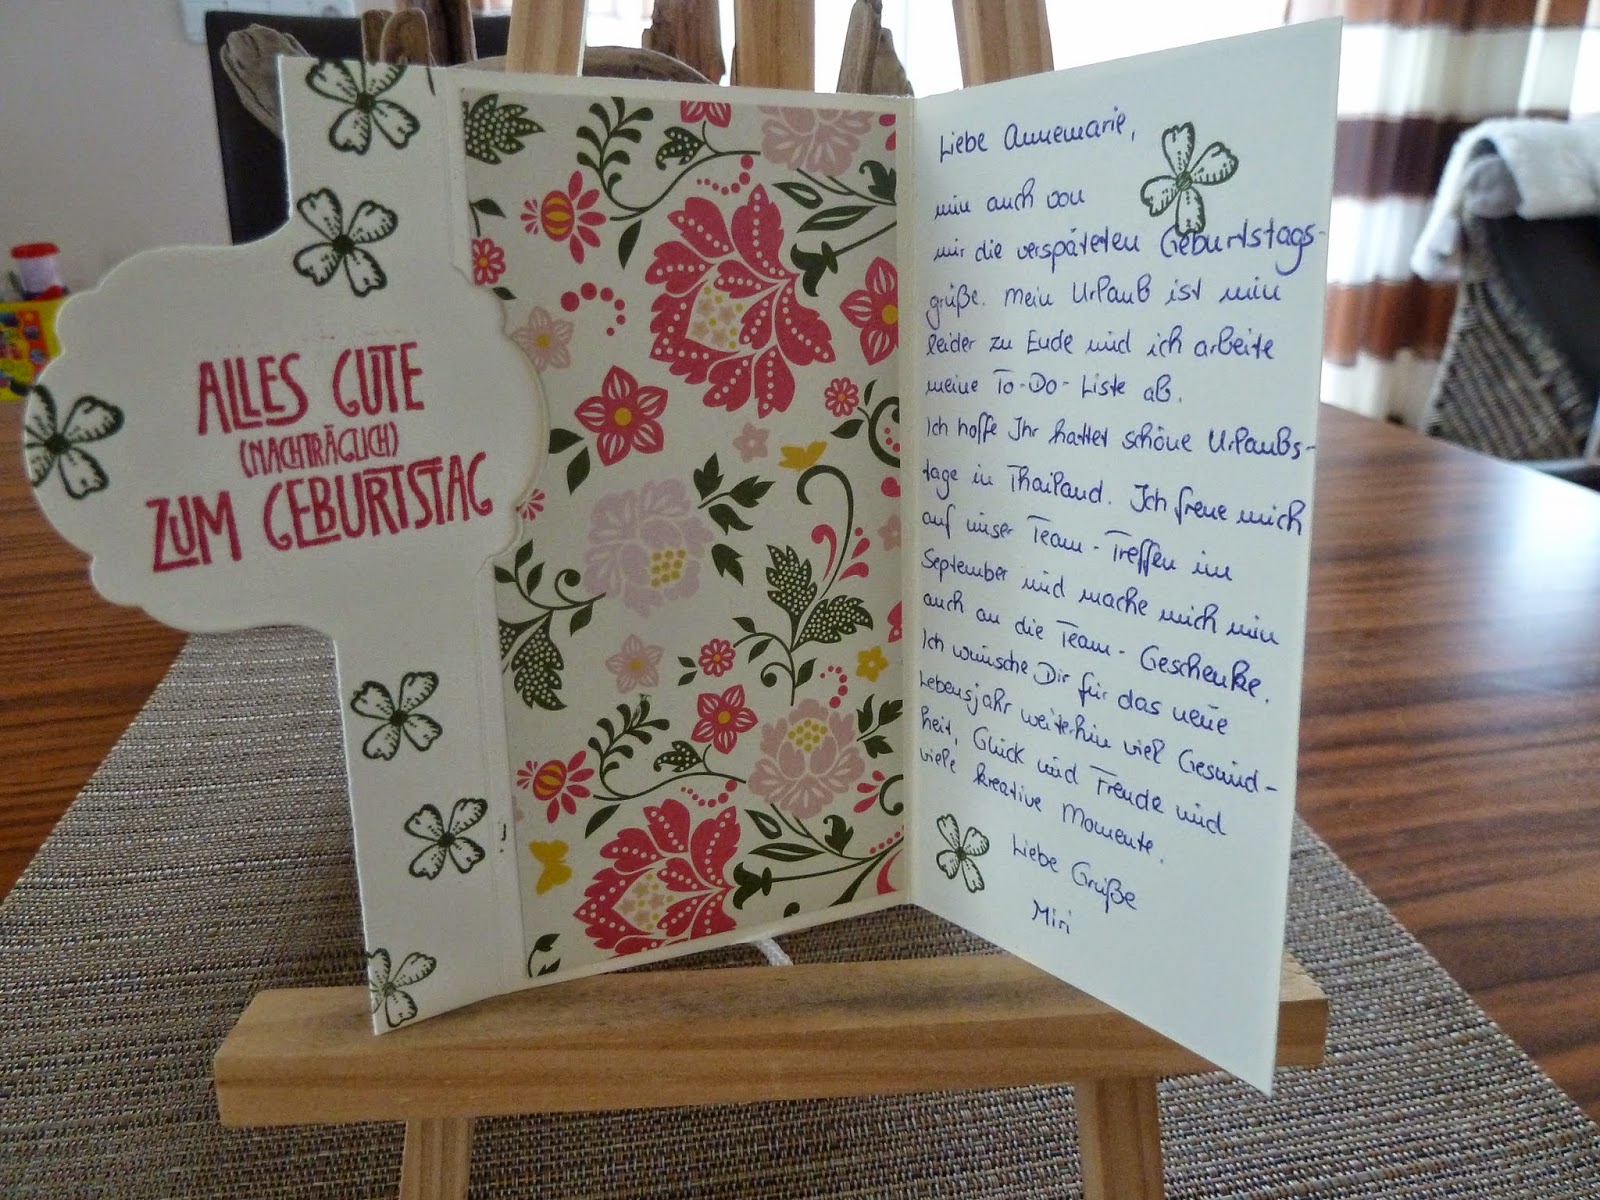 ALLES GUTE
(NACHTRÄGLICH)
ZUM GEBURTSTAG
Liebe Annemarie,
nun auch von
mir die verspäteten Geburtstags-
grüße. Mein Urlaub ist nun
leider zu Ende und ich arbeite
meine To-Do-Liste ab.
Ich hoffe Ihr hattet schöne Urlaubs-
tage in Thailand. Ich freue mich
auf unser Team-Treffen im
September und mache mich nun
auch an die Team-Geschenke.
Ich wünsche Dir für das neue
Lebensjahr weiterhin viel Gesund-
heit, Glück und Freude und
viele kreative Momente.
Liebe Grüße
Miri